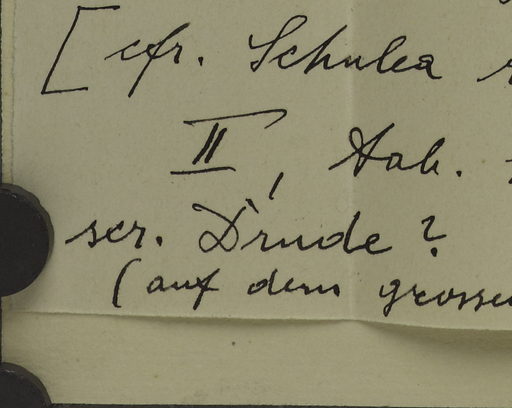 [cfr. Schulea
II, Aab.
scr. Drude?
(auf dem grossen